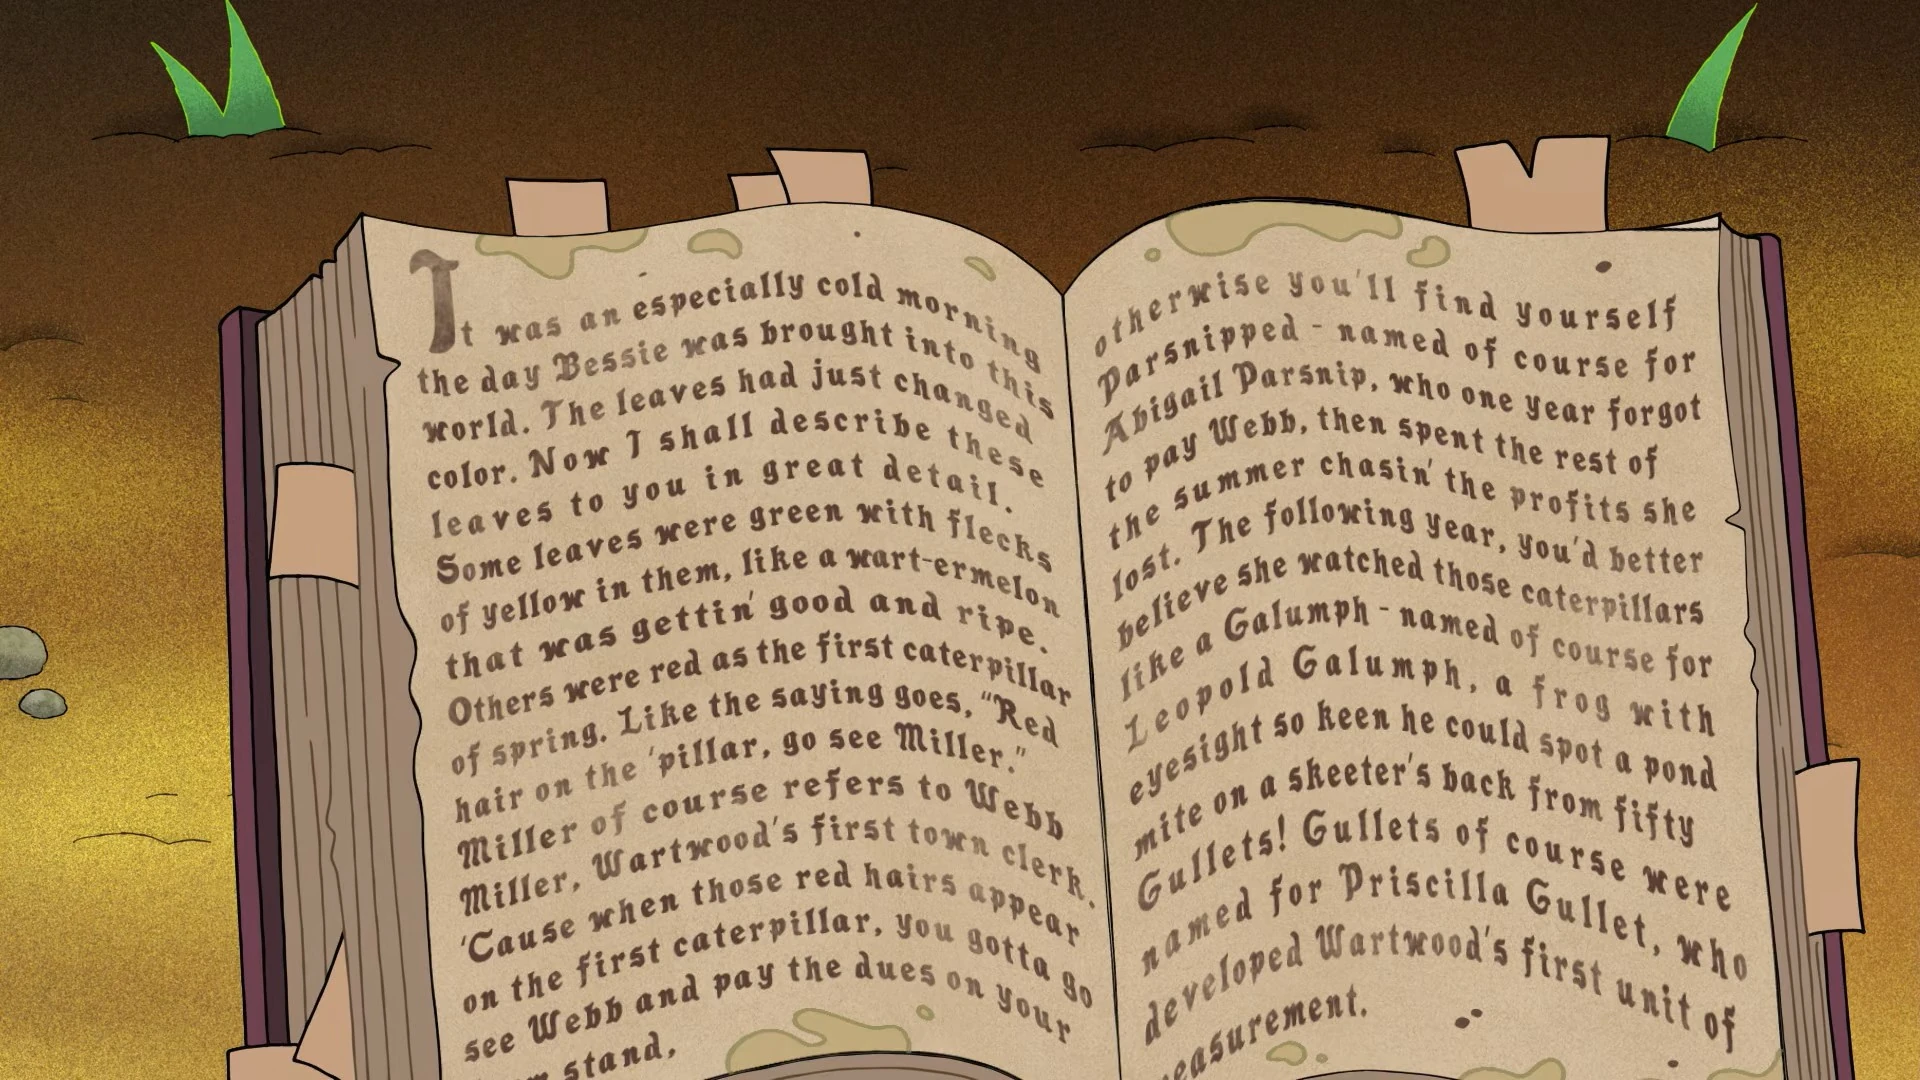 It was an especially cold morning
the day Bessie was brought into this
world. The leaves had just changed
color. Now I shall describe these
leaves to you in great detail.
Some leaves were green with flecks
of yellow in them, like a wart-ermelon
that was gettin' good and ripe.
Others were red as the first caterpillar
of spring. Like the saying goes, "Red
hair on the 'pillar, go see Miller."
Miller of course refers to Webb
Miller, Wartwood's first town clerk.
'Cause when those red hairs appear
on the first caterpillar, you gotta go
see Webb and pay the dues on your
stand,
otherwise you'll find yourself
Parsnipped - named of course for
Abigail Parsnip, who one year forgot
to pay Webb, then spent the rest of
the summer chasin' the profits she
lost. The following year, you'd better
believe she watched those caterpillars
like a Galumph - named of course for
Leopold Galumph, a frog with
eyesight so keen he could spot a pond
mite on a skeeter's back from fifty
Gullets! Gullets of course were
named for Priscilla Gullet, who
developed Wartwood's first unit of
measurement.